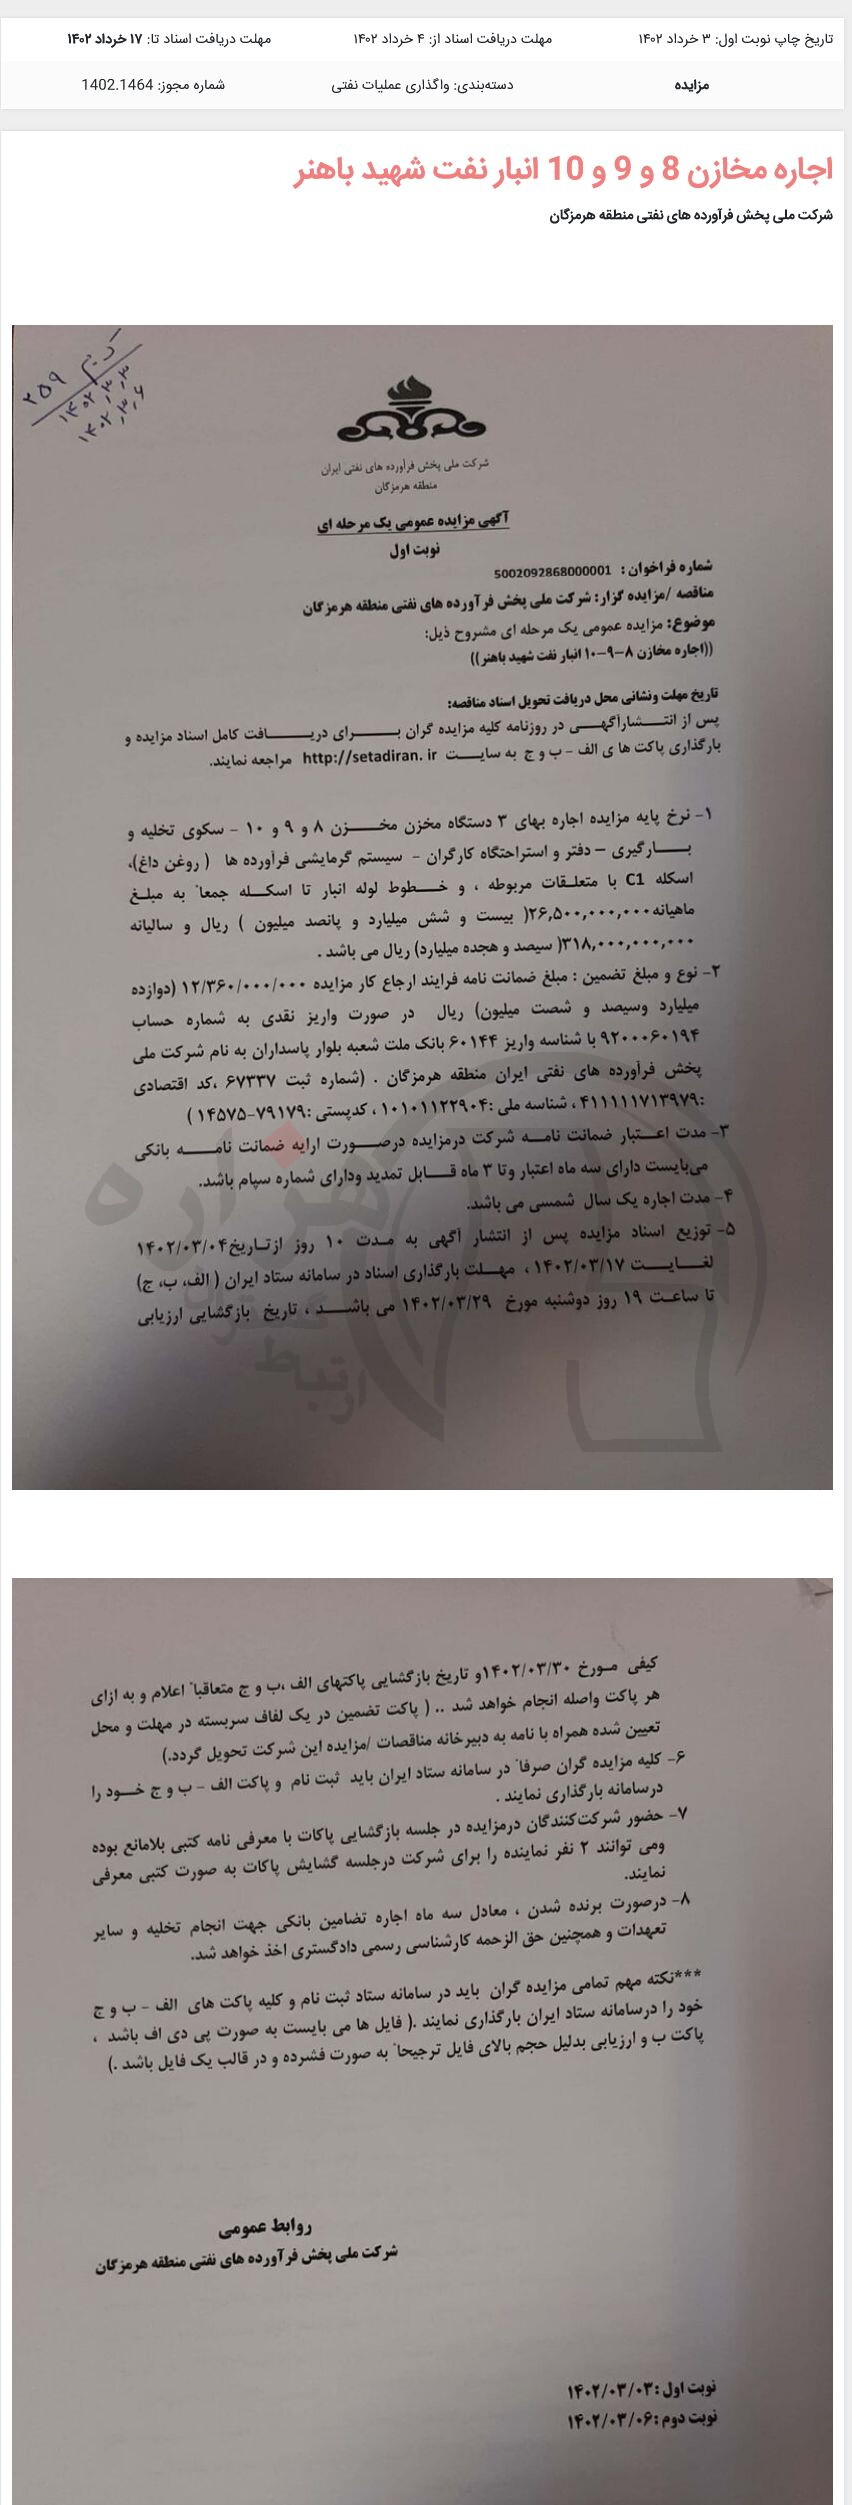 تاریخ چاپ نوبت اول: ۳ خرداد ۱۴۰۲
مهلت دریافت اسناد از: ۴ خرداد ۱۴۰۲
مهلت دریافت اسناد تا: ۱۷ خرداد ۱۴۰۲
مزایده
دسته‌بندی: واگذاری عملیات نفتی
شماره مجوز: 1402.1464
اجاره مخازن 8 و 9 و 10 انبار نفت شهید باهنر
شرکت ملی پخش فرآورده های نفتی منطقه هرمزگان
۲۵۹
شرکت ملی پخش فرآورده های نفتی ایران
منطقه هرمزگان
آگهی مزایده عمومی یک مرحله ای
نوبت اول
شماره فراخوان : 5002092868000001
مناقصه /مزایده گزار: شرکت ملی پخش فرآورده های نفتی منطقه هرمزگان
موضوع: مزایده عمومی یک مرحله ای مشروح ذیل:
((اجاره مخازن ۸-۹-۱۰ انبار نفت شهید باهنر))
تاریخ مهلت ونشانی محل دریافت تحویل اسناد مناقصه:
پس از انتشارآگهی در روزنامه کلیه مزایده گران برای دریافت کامل اسناد مزایده و
بارگذاری پاکت ها ی الف – ب و ج به سایت http://setadiran.ir مراجعه نمایند.
۱- نرخ پایه مزایده اجاره بهای ۳ دستگاه مخزن مخزن ۸ و ۹ و ۱۰ - سکوی تخلیه و
بارگیری – دفتر و استراحتگاه کارگران - سیستم گرمایشی فرآورده ها ( روغن داغ)،
اسکله C1 با متعلقات مربوطه ، و خطوط لوله انبار تا اسکله جمعاً به مبلغ
ماهیانه۲۶,۵۰۰,۰۰۰,۰۰۰( بیست و شش میلیارد و پانصد میلیون ) ریال و سالیانه
۳۱۸,۰۰۰,۰۰۰,۰۰۰( سیصد و هجده میلیارد) ریال می باشد .
۲- نوع و مبلغ تضمین : مبلغ ضمانت نامه فرایند ارجاع کار مزایده ۱۲/۳۶۰/۰۰۰/۰۰۰ (دوازده
میلیارد وسیصد و شصت میلیون) ریال در صورت واریز نقدی به شماره حساب
۹۲۰۰۰۶۰۱۹۴ با شناسه واریز ۶۰۱۴۴ بانک ملت شعبه بلوار پاسداران به نام شرکت ملی
پخش فرآورده های نفتی ایران منطقه هرمزگان . (شماره ثبت ۶۷۳۳۷ ،کد اقتصادی
:۴۱۱۱۱۱۷۱۳۹۷۹ ، شناسه ملی :۱۰۱۰۱۱۲۲۹۰۴ ، کدپستی :۷۹۱۷۹-۱۴۵۷۵ )
۳- مدت اعتبار ضمانت نامه شرکت درمزایده درصورت ارایه ضمانت نامه بانکی
می‌بایست دارای سه ماه اعتبار وتا ۳ ماه قابل تمدید ودارای شماره سپام باشد.
۴- مدت اجاره یک سال شمسی می باشد.
۵- توزیع اسناد مزایده پس از انتشار آگهی به مدت ۱۰ روز ازتاریخ۱۴۰۲/۰۳/۰۴
لغایت ۱۴۰۲/۰۳/۱۷ ، مهلت بارگذاری اسناد در سامانه ستاد ایران ( الف، ب، ج)
تا ساعت ۱۹ روز دوشنبه مورخ ۱۴۰۲/۰۳/۲۹ می باشد ، تاریخ بازگشایی ارزیابی
هزاره
ارتباط
کیفی مورخ ۱۴۰۲/۰۳/۳۰و تاریخ بازگشایی پاکتهای الف ،ب و ج متعاقباً اعلام و به ازای
هر پاکت واصله انجام خواهد شد .. ( پاکت تضمین در یک لفاف سربسته در مهلت و محل
تعیین شده همراه با نامه به دبیرخانه مناقصات /مزایده این شرکت تحویل گردد.)
۶- کلیه مزایده گران صرفاً در سامانه ستاد ایران باید ثبت نام و پاکت الف – ب و ج خود را
درسامانه بارگذاری نمایند .
۷- حضور شرکت‌کنندگان درمزایده در جلسه بازگشایی پاکات با معرفی نامه کتبی بلامانع بوده
ومی توانند ۲ نفر نماینده را برای شرکت درجلسه گشایش پاکات به صورت کتبی معرفی
نمایند.
۸- درصورت برنده شدن ، معادل سه ماه اجاره تضامین بانکی جهت انجام تخلیه و سایر
تعهدات و همچنین حق الزحمه کارشناسی رسمی دادگستری اخذ خواهد شد.
***نکته مهم تمامی مزایده گران باید در سامانه ستاد ثبت نام و کلیه پاکت های الف – ب و ج
خود را درسامانه ستاد ایران بارگذاری نمایند .( فایل ها می بایست به صورت پی دی اف باشد ،
پاکت ب و ارزیابی بدلیل حجم بالای فایل ترجیحاً به صورت فشرده و در قالب یک فایل باشد .)
روابط عمومی
شرکت ملی پخش فرآورده های نفتی منطقه هرمزگان
نوبت اول :۱۴۰۲/۰۳/۰۳
نوبت دوم :۱۴۰۲/۰۳/۰۶